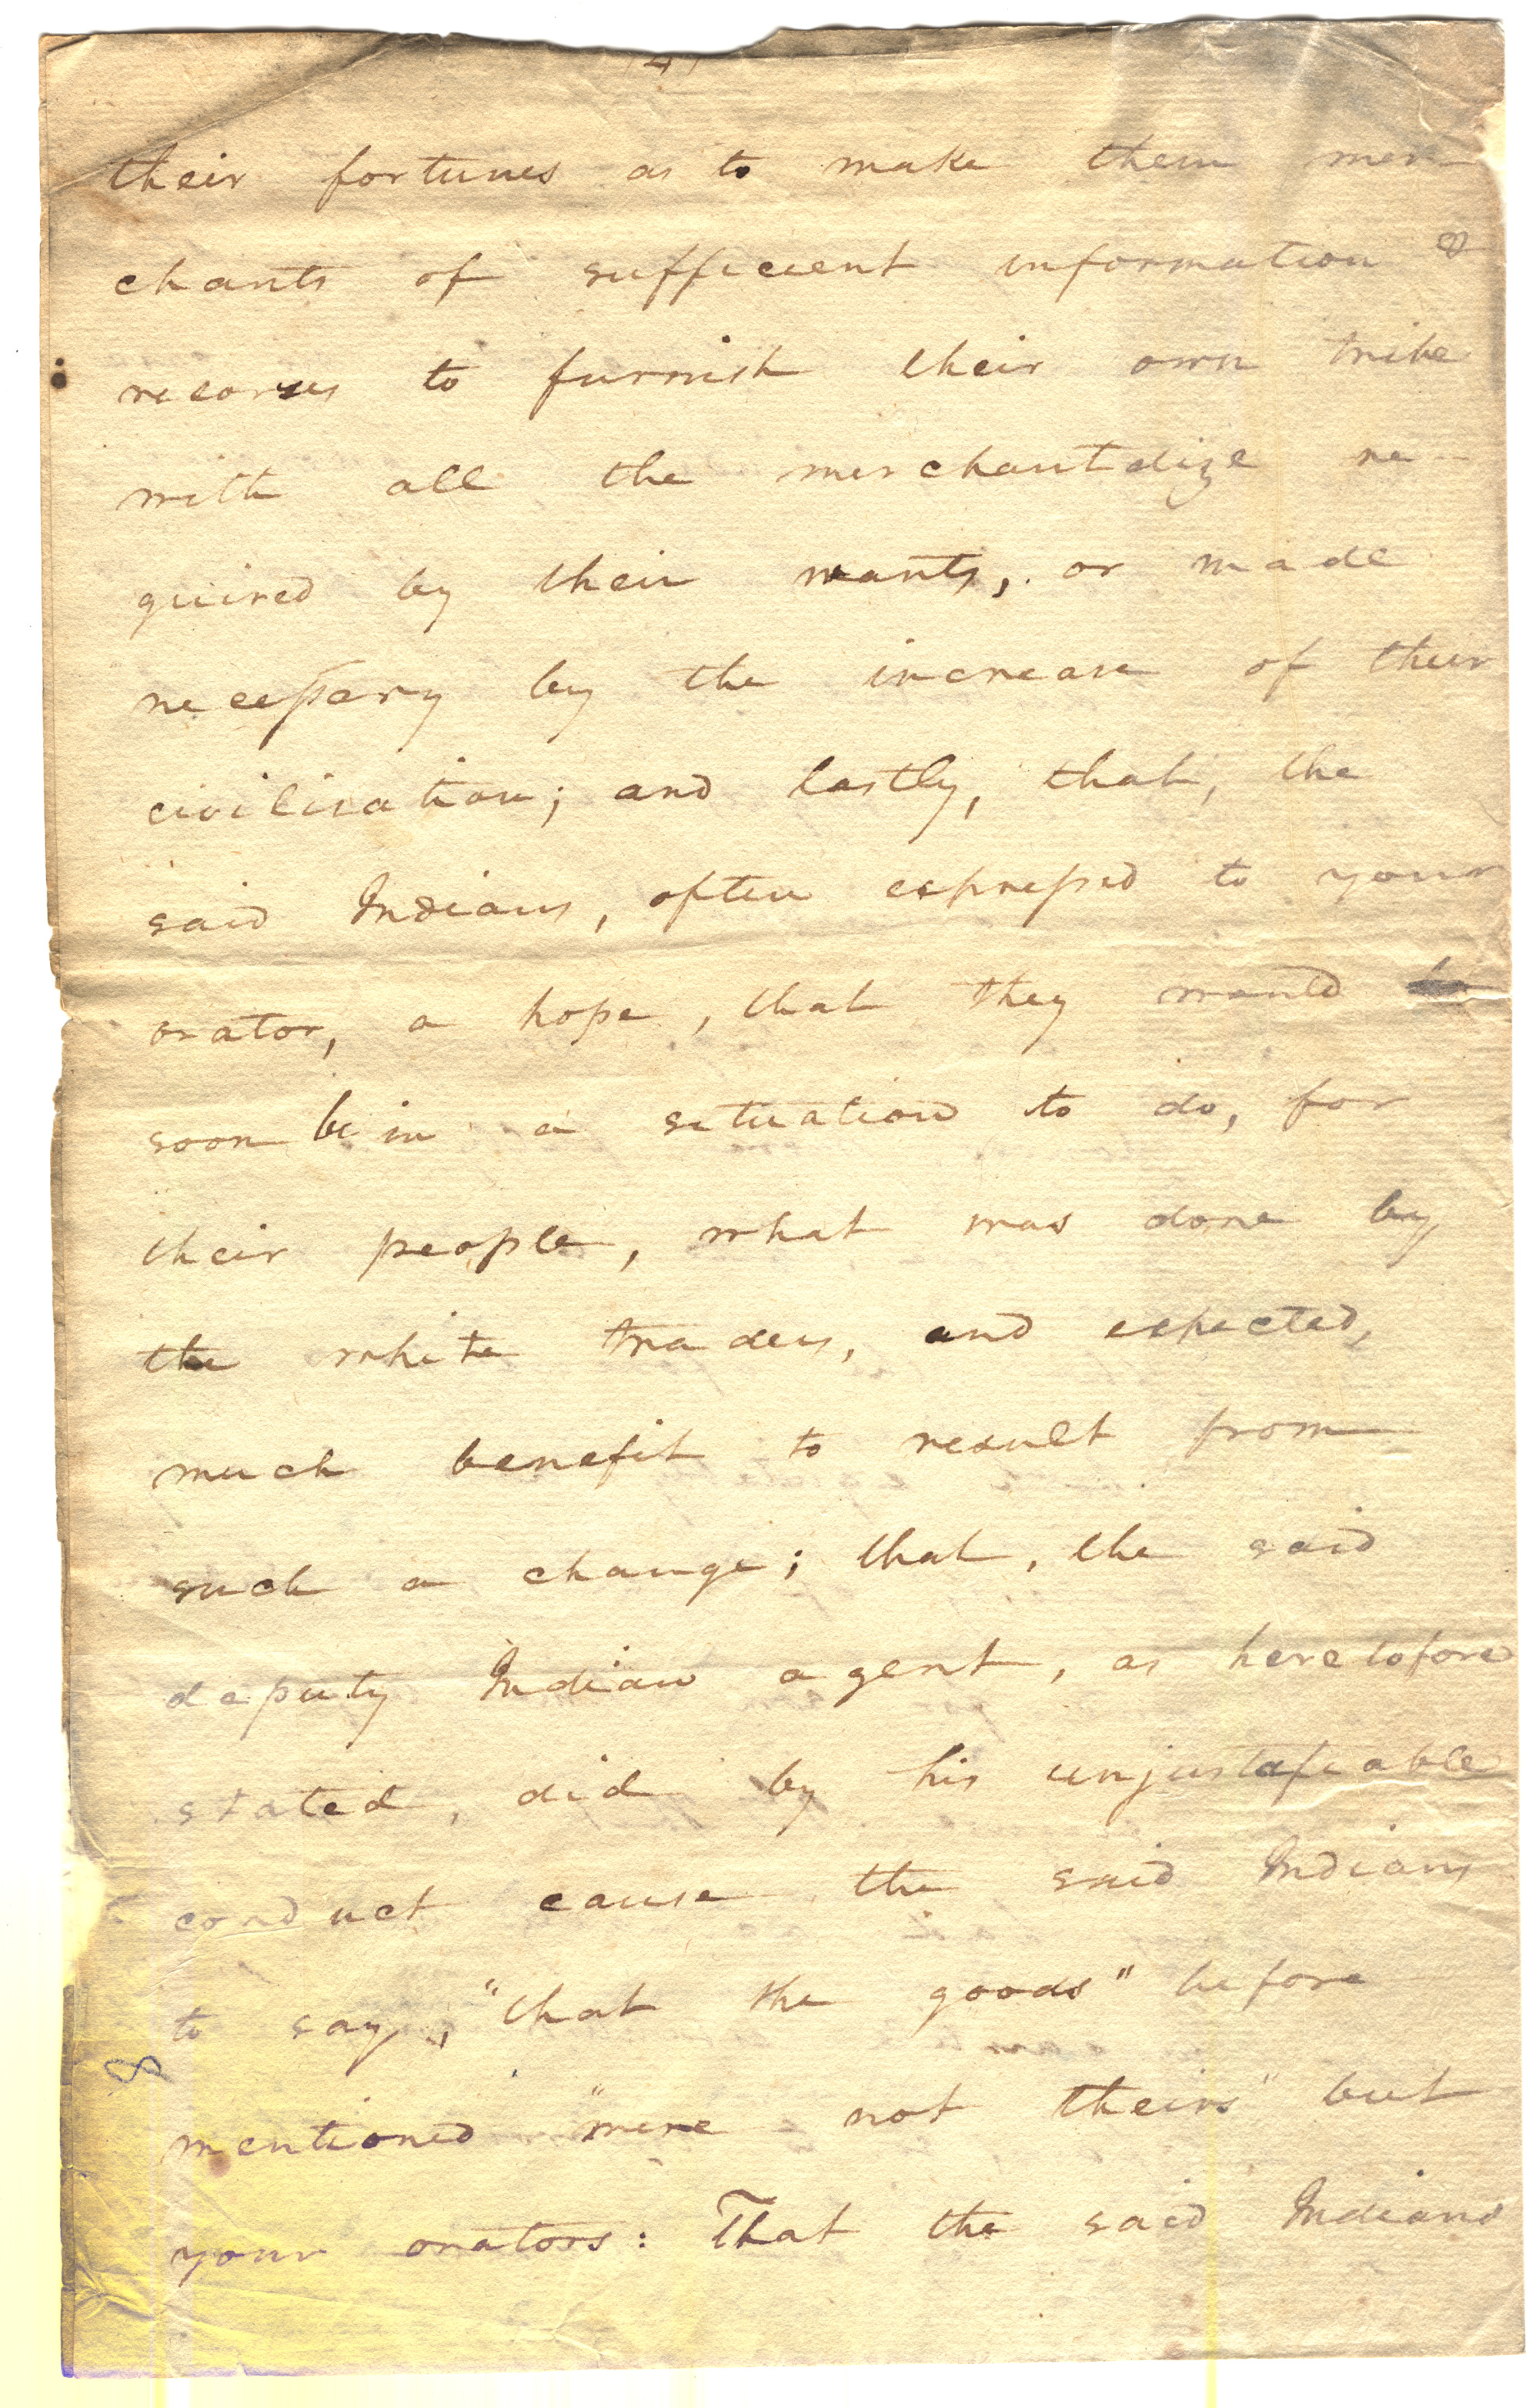 (4)
their fortunes as to make them mer
chants of sufficient information &
recorses to furnish their own tribe
with all the merchantdize re-
quired by their wants, or made
necessary by the increase of their
civilisation; and lastly, that, the
said Indians, often expressed to your
orator, a hope, that they would
soon be in a situation to do, for
their people, what was done by
the white traders, and expected,
much benefit to result from
such a change; that, the said
deputy Indian agent, as heretofore
stated, did by his unjustafiable
conduct cause the said Indians
to say, "that the goods" before
8
mentioned "were not theirs" but
your orators: That the said Indians